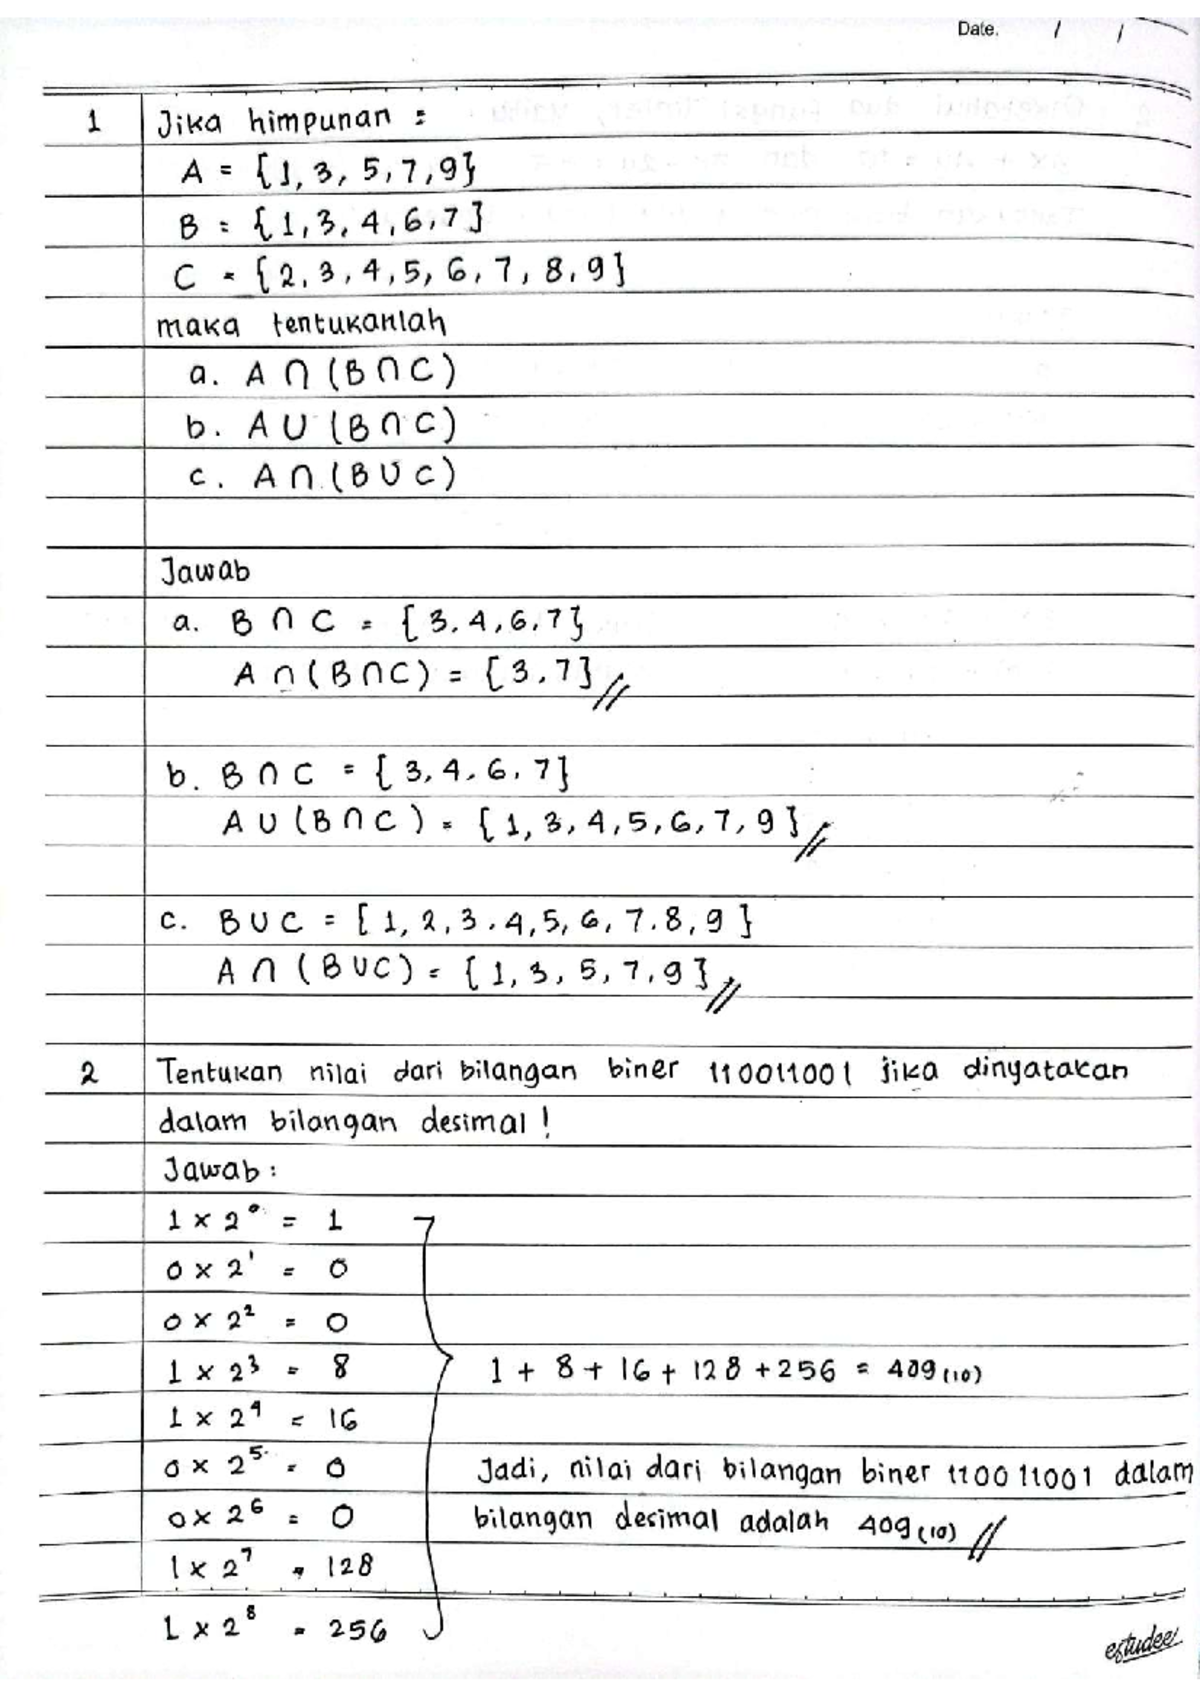 Date. / /
1 Jika himpunan :
A = {1, 3, 5, 7, 9}
B = {1, 3, 4, 6, 7}
C = {2, 3, 4, 5, 6, 7, 8, 9}
maka tentukanlah
a. A ∩ (B ∩ C)
b. A ∪ (B ∩ C)
c. A ∩ (B ∪ C)
Jawab
a. B ∩ C = {3, 4, 6, 7}
A ∩ (B ∩ C) = {3, 7} //
b. B ∩ C = {3, 4, 6, 7}
A ∪ (B ∩ C) = {1, 3, 4, 5, 6, 7, 9} //
c. B ∪ C = {1, 2, 3, 4, 5, 6, 7, 8, 9}
A ∩ (B ∪ C) = {1, 3, 5, 7, 9} //
2 Tentukan nilai dari bilangan biner 110011001 jika dinyatakan
dalam bilangan desimal !
Jawab :
1 × 2⁰ = 1
0 × 2¹ = 0
0 × 2² = 0
1 × 2³ = 8
1 + 8 + 16 + 128 + 256 = 409 (10)
1 × 2⁴ = 16
0 × 2⁵ = 0
Jadi, nilai dari bilangan biner 110011001 dalam
0 × 2⁶ = 0
bilangan desimal adalah 409 (10) //
1 × 2⁷ = 128
1 × 2⁸ = 256
estudee